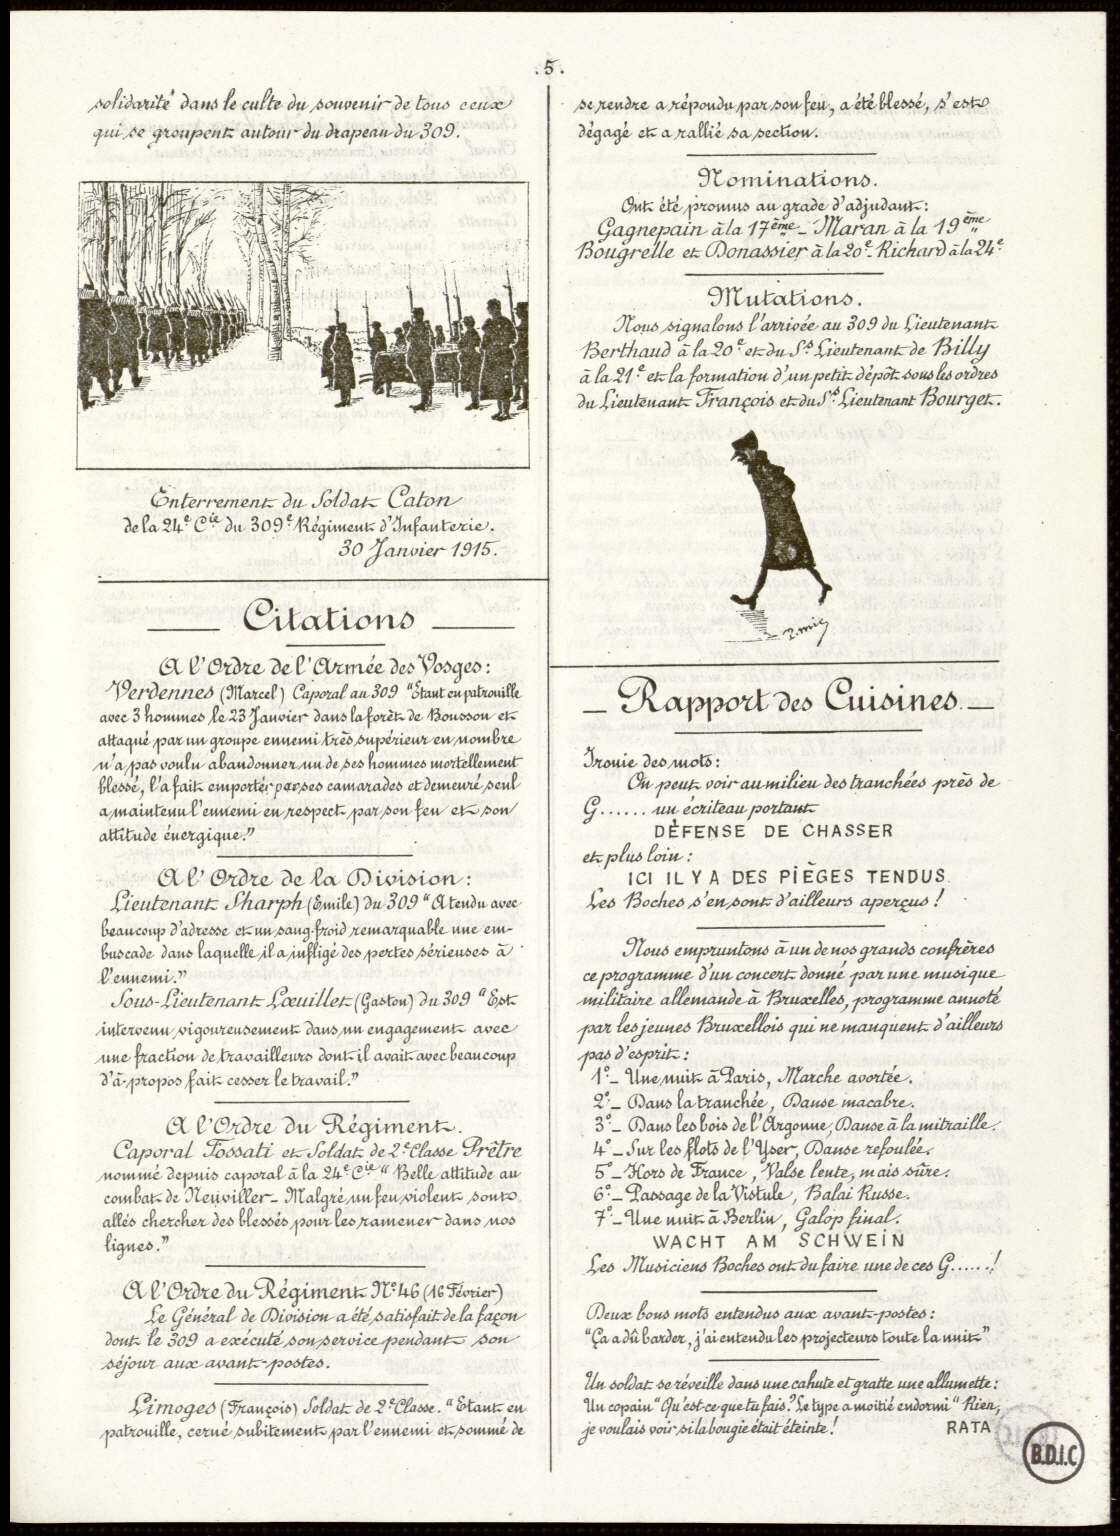 .5.
solidarité dans le culte du souvenir de tous ceux
qui se groupent autour du drapeau du 309.
Enterrement du Soldat Caton
de la 24e Cie du 309e Régiment d'Infanterie.
30 Janvier 1915.
Citations
A l'Ordre de l'Armée des Vosges:
Verdennes (Marcel) Caporal au 309 "Étant en patrouille
avec 3 hommes le 23 Janvier dans la forêt de Bousson et
attaqué par un groupe ennemi très supérieur en nombre
n'a pas voulu abandonner un de ses hommes mortellement
blessé, l'a fait emporter par ses camarades et demeuré seul
a maintenu l'ennemi en respect par son feu et son
attitude énergique."
A l'Ordre de la Division:
Lieutenant Sharph (Emile) du 309 "A tendu avec
beaucoup d'adresse et un sang-froid remarquable une em-
buscade dans laquelle il a infligé des pertes sérieuses à
l'ennemi."
Sous-Lieutenant Lœuillet (Gaston) du 309 "Est
intervenu vigoureusement dans un engagement avec
une fraction de travailleurs dont il avait avec beaucoup
d'à-propos fait cesser le travail."
A l'Ordre du Régiment.
Caporal Fossati et Soldat de 2e Classe Prêtre
nommé depuis caporal à la 24e Cie "Belle attitude au
combat de Neuviller - Malgré un feu violent sont
allés chercher des blessés pour les ramener dans nos
lignes."
A l'Ordre du Régiment No 46 (16 Février)
Le Général de Division a été satisfait de la façon
dont le 309 a exécuté son service pendant son
séjour aux avant-postes.
Limoges (François) Soldat de 2e Classe. "Etant en
patrouille, cerné subitement par l'ennemi et sommé de
se rendre a répondu par son feu, a été blessé, s'est
dégagé et a rallié sa section.
Nominations.
Ont été promus au grade d'adjudant:
Gagnepain à la 17ème - Maran à la 19ème
Bougrelle et Donassier à la 20e - Richard à la 24e.
Mutations.
Nous signalons l'arrivée au 309 du Lieutenant
Berthaud à la 20e et du Ss Lieutenant de Billy
à la 21e et la formation d'un petit dépôt sous les ordres
du Lieutenant François et du Ss Lieutenant Bourget.
P. mig
Rapport des Cuisines.
Ironie des mots:
On peut voir au milieu des tranchées près de
G...... un écriteau portant
DÉFENSE DE CHASSER
et plus loin:
ICI IL Y A DES PIÈGES TENDUS.
Les Boches s'en sont d'ailleurs aperçus!
Nous empruntons à un de nos grands confrères
ce programme d'un concert donné par une musique
militaire allemande à Bruxelles, programme annoté
par les jeunes Bruxellois qui ne manquent d'ailleurs
pas d'esprit:
1°- Une nuit à Paris, Marche avortée.
2°- Dans la tranchée, Danse macabre.
3°- Dans les bois de l'Argonne, Danse à la mitraille.
4°- Sur les flots de l'Yser, Danse refoulée.
5°- Hors de France, Valse lente, mais sûre.
6°- Passage de la Vistule, Balai Russe.
7°- Une nuit à Berlin, Galop final.
WACHT AM SCHWEIN
Les Musiciens Boches ont du faire une de ces G.....!
Deux bons mots entendus aux avant-postes:
"Ça a dû barder, j'ai entendu les projecteurs toute la nuit"
Un soldat se réveille dans une cahute et gratte une allumette:
Un copain "Qu'est-ce que tu fais? Le type a moitié endormi "Rien,
je voulais voir si la bougie était éteinte!
RATA
B.D.I.C